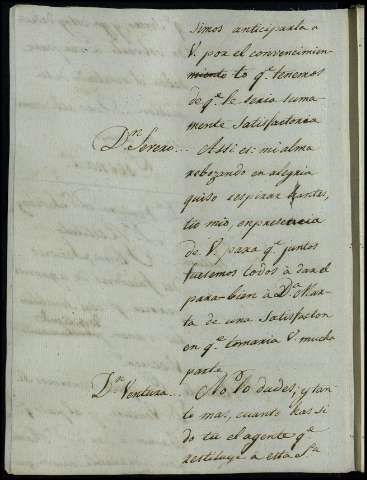 simos anticiparla a
V. por el convencimien
to qe. tenemos
de qe. le seria suma-
mente satisfactoria
Dn. Severo... Assi es: mi alma
rebozando en alegria
quiso respirar antes,
tio mio, en presencia
de V. para qe. juntos
fuesemos todos à dar el
para-bien à Da. Mar-
ta de una satisfaccion
en qe. tomaria V. mucha
parte
Dn. Ventura... No lo dudes; y tan-
to mas, cuanto has si-
do tu el agente qe.
restituye a esta Sa.